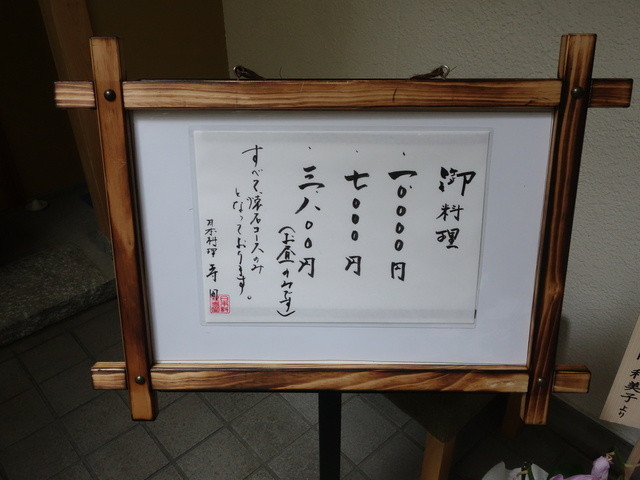 御料理
・一〇、〇〇〇円
・七、〇〇〇円
・三、八〇〇円
(お昼のみです)
すべて、懐石コースのみ
となっております。
日本料理 寺田
和美子より